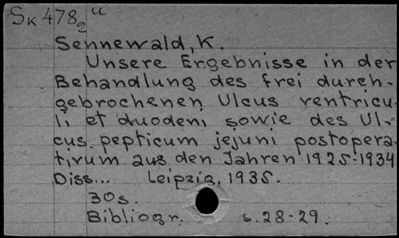 Sk 478₂ u
Sennewald, K.
Unsere Ergebnisse in der
Behandlung des frei durch-
gebrochenen Ulcus ventricu-
li et duodeni sowie des Ul-
cus pepticum jejuni postopera-
tivum aus den Jahren 1925-1934
Diss... Leipzig, 1935.
30s.
Bibliogr. s.28-29.